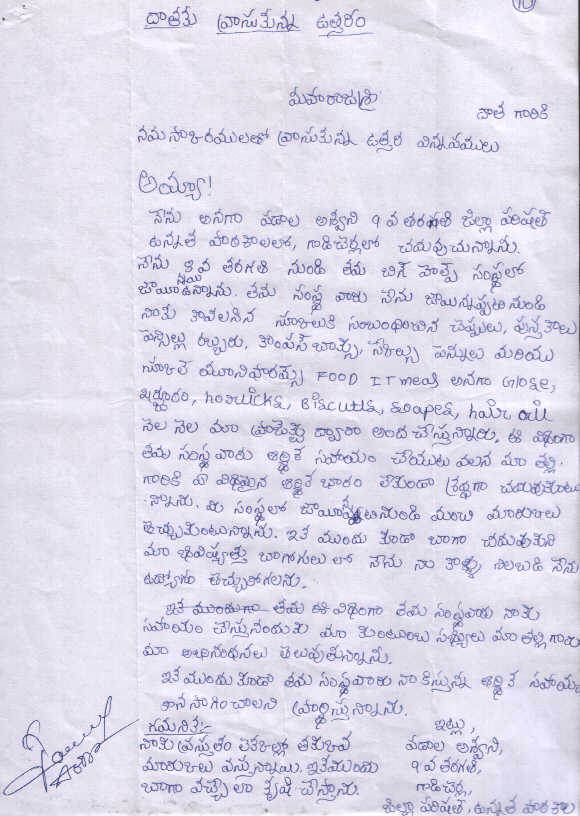 దాతకు వ్రాసుకున్న ఉత్తరం
మహారాజశ్రీ
దాత గారికి
నమస్కారములతో వ్రాసుకున్న ఉత్తర విన్నపములు
అయ్యా!
నేను అనగా వడాల అశ్వని 9 వ తరగతి జిల్లా పరిషత్
ఉన్నత పాఠశాలలో, గాడిచెర్లలో చదువుచున్నాను.
నేను 8వ తరగతి నుండి తమ సంస్థలో
జాయిన్ అయి ఉన్నాను. తమ సంస్థ వారు నేను జాయిన్నప్పటినుండి
నాకు కావలసిన స్కూలుకి సంబంధించిన చెప్పులు, పుస్తకాలు
పెన్సిల్లు రబ్బరు, కాంపస్ బాక్సు, స్కేల్సు పెన్నులు మరియు
స్కూల్ యూనిఫారమ్స్ FOOD ITmeas అనగా Gloke,
ఖర్జూరం, horlicks, Biscutis, soapes, hair oil
నెల నెల మా ప్రాజెక్టు ద్వారా అంద చేస్తున్నారు. ఈ విధంగా
తమ సంస్థ వారు ఆర్థిక సహాయం చేయుట వలన మా తల్లి
గారికి ఏ విధమైన ఆర్థిక భారం లేకుండా శ్రద్ధగా చదువుకుంటు
న్నాను. మీ సంస్థలో జాయినప్పటినుండి మంచి మార్కులు
తెచ్చుకుంటున్నాను. ఇక ముందు కూడా బాగా చదువుకుని
మా భవిష్యత్తు బాగోగులలో నేను నా కాళ్ళపై నిలబడి నేను
ఉద్యోగం తెచ్చుకోగలను.
ఇక ముందుగా తమ ఈ విధంగా తమ సంస్థవారు నాకు
సహాయం చేస్తున్నందుకు మా కుటుంబ సభ్యులు మా తల్లి గారు
మా అభినందనలు తెలుపుతున్నాను.
ఇక ముందు కూడా తమ సంస్థవారు నా కిస్తున్న ఆర్థిక సహాయం
కొనసాగించాలని ప్రార్థిస్తున్నాను.
గమనిక:-
నాకు ప్రస్తుతం తక్కువ
మార్కులు వస్తున్నాయి. ఇకముందు
బాగా వచ్చేలా కృషి చేస్తాను.
ఇట్లు,
వడాల అశ్వని,
9 వ తరగతి,
గాడిచెర్ల,
జిల్లా పరిషత్, ఉన్నత పాఠశాల